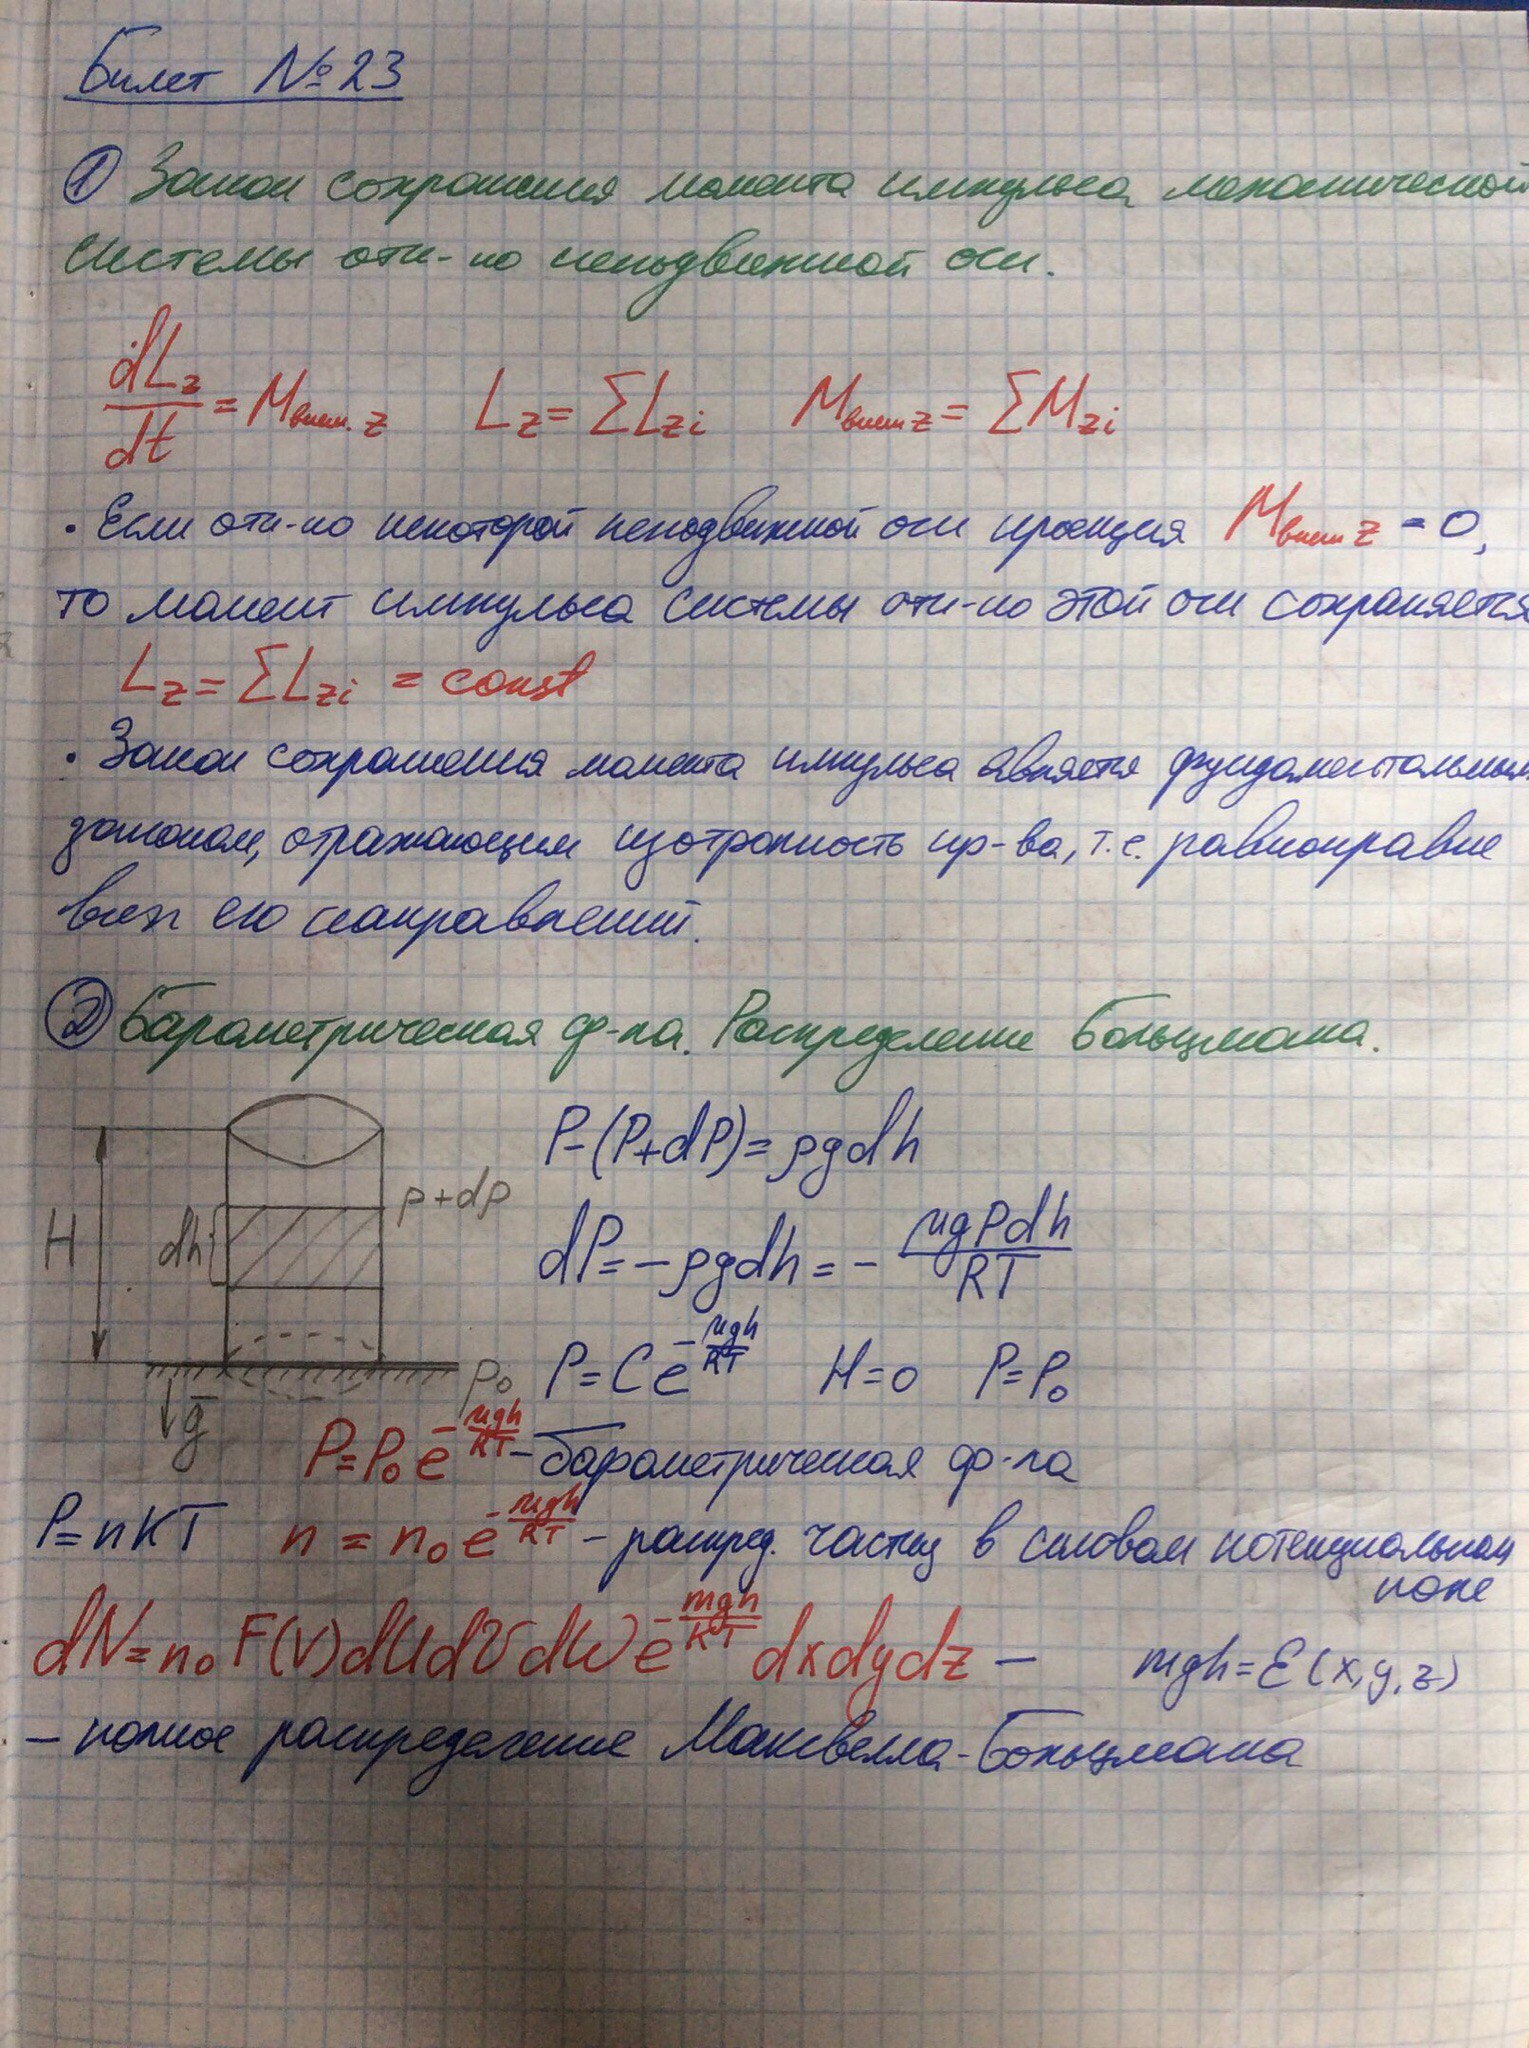 Билет №23
① Закон сохранения момента импульса механической
системы отн-но неподвижной оси.
dLz/dt = Mвнеш.z   Lz = ΣLzi   Mвнеш z = ΣMzi
• Если отн-но некоторой неподвижной оси проекция Mвнеш z = 0,
то момент импульса системы отн-но этой оси сохраняется
Lz = ΣLzi = const
• Закон сохранения момента импульса является фундаментальным
законом, отражающим изотропность пр-ва, т.е. равноправие
всех его направлений.
② Барометрическая ф-ла. Распределение Больцмана.
H
dh
p+dp
p₀
g̅
P-(P+dP) = ρgdh
dP = -ρgdh = - μgPdh/RT
P = Ce^(-μgh/RT)   H=0   P=P₀
P = P₀e^(-μgh/RT) - барометрическая ф-ла
P = nKT   n = n₀e^(-μgh/RT) - распред. частиц в силовом потенциальном
поле
dN = n₀F(V)dUdVdW e^(-mgh/KT) dxdydz -   mgh = Ɛ(x,y,z)
- полное распределение Максвелла-Больцмана